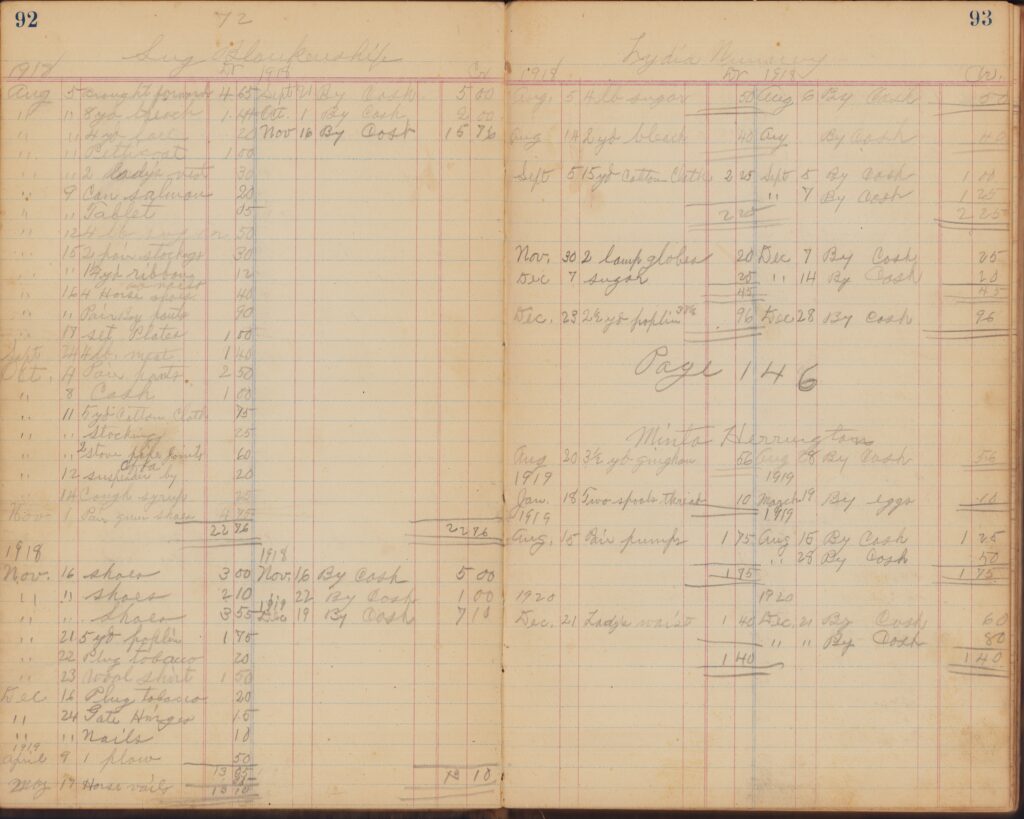 92
72
Blankenship
1918 Dr 1918 Cr
Aug 5 Brought forward 4 65 Sept 21 By Cash 5 00
" " 8 yd 1.44 Oct. 1 By Cash 2 00
" " 4 yd lace 20 Nov 16 By Cost 15 76
" " Petticoat 1 00
" " 2 ladys vest 30
" 9 Can salmon 20
" " Tablet 05
" 12 4 lb 50
" 15 2 pair stockings 30
" " yd ribbon 12
" 16 4 Horse shoes 40
" " Pair By pants 90
" 17 set Plates 1 00
Sept 24 4 lb. meat 1 40
Oct. 4 Pair pants 2 50
" 8 Cash 1 00
" 11 5 yd Cotton Cloth 75
" " Stocking 25
" " 2 stove pipe joints 60
" 12 suspender by 20
" 14 Cough syrup 25
Nov 1 Pair gum shoes 4 75
22 76 22 76
1918 1918
Nov. 16 shoes 3 00 Nov. 16 By Cash 5 00
" " shoes 2 10 " 22 By Cash 1 00
1919
" " shoes 3 55 Dec 19 By Cash 7 10
" 21 5 yd poplin 1 75
" 22 Plug tobacco 20
" 23 Wool shirt 1 50
Dec 16 Plug tobacco 20
" 24 Gate Hinges 15
" " Nails 10
1919
April 9 1 plow 50
13 05 13 10
May 17 Horse nails
13 10
93
Lydia
1918 Dr 1918 Cr.
Aug. 5 4 lb sugar 50 Aug 6 By Cash 50
Aug 14 2 yd bleach 40 Aug By Cash 40
Sept 5 15 yd Cotton Cloth 2 25 Sept 5 By Cash
" 7 By Cash 1 25
2 25 2 25
Nov. 30 2 lamp globes 20 Dec 7 By Cash 25
Dec 7 sugar 25 " 14 By Cash 20
45 45
Dec. 23 2½ yd poplin 38½ 96 Dec 28 By Cash 96
Page 146
Minta Herrington
Aug 20 3½ yd gingham 56 Aug 28 By Cash 56
1919 1919
Jan. 18 Two spools thread 10 March 19 By eggs 10
1919 1919
Aug. 15 Pair pumps 1 75 Aug 15 By Cash 1 25
" 28 By Cash 50
1 75 1 75
1920 1920
Dec. 21 Ladys waist 1 40 Dec. 21 By Cash 60
" " By Cash 80
1 40 1 40